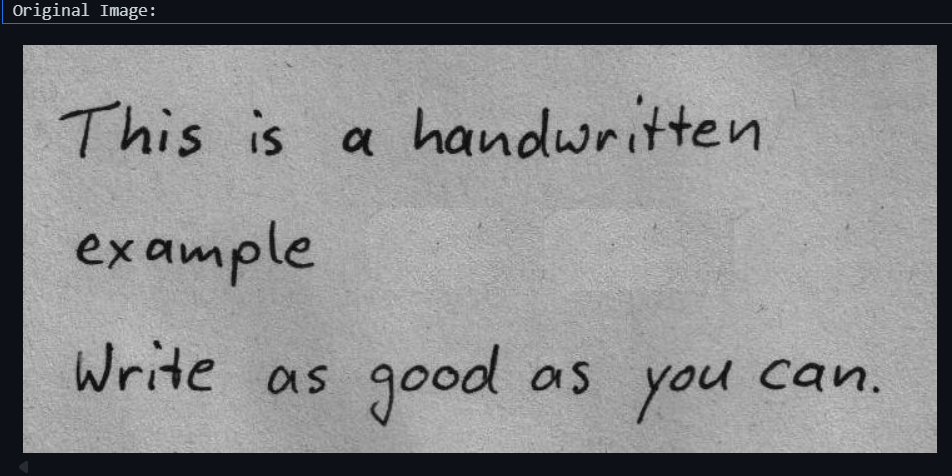 Original Image:
This is a handwritten
example
Write as good as you can.